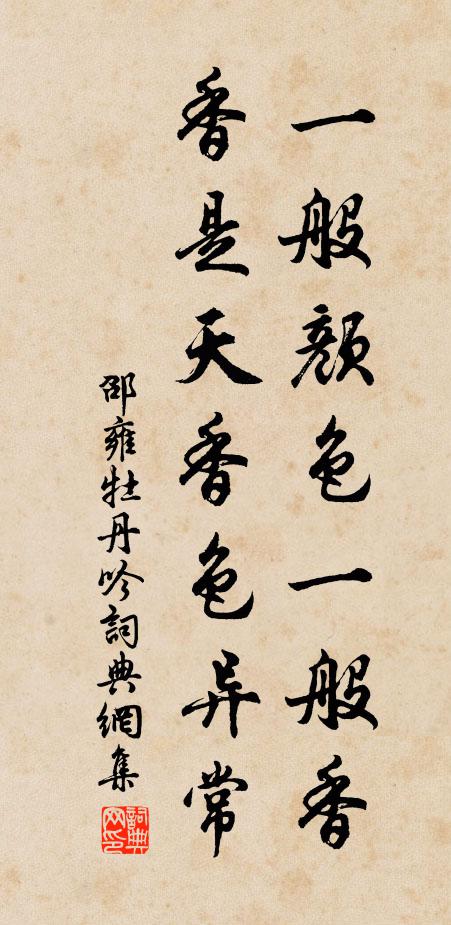 一般颜色一般香
香是天香色异常
邵雍牡丹吟詞典網集
詞典网印